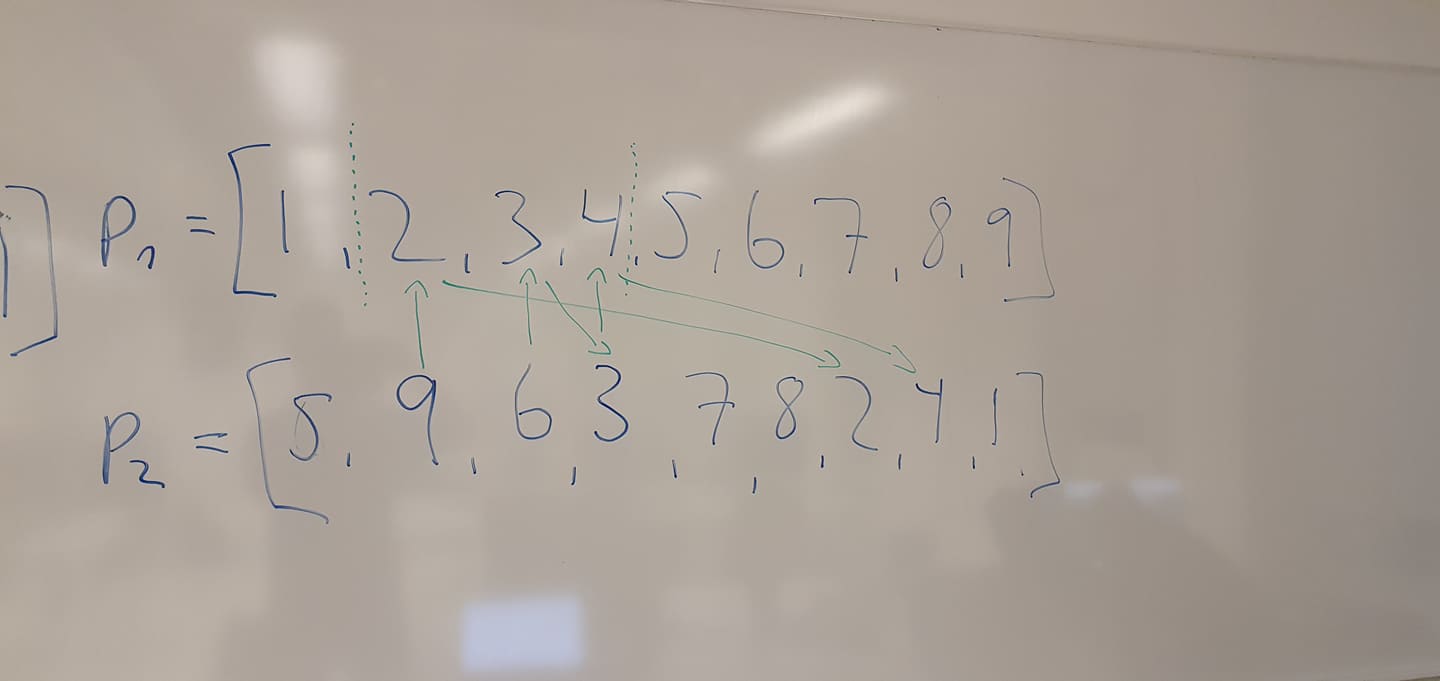 P₁ = [1, 2, 3, 4, 5, 6, 7, 8, 9]
P₂ = [5, 9, 6, 3, 7, 8, 2, 4, 1]